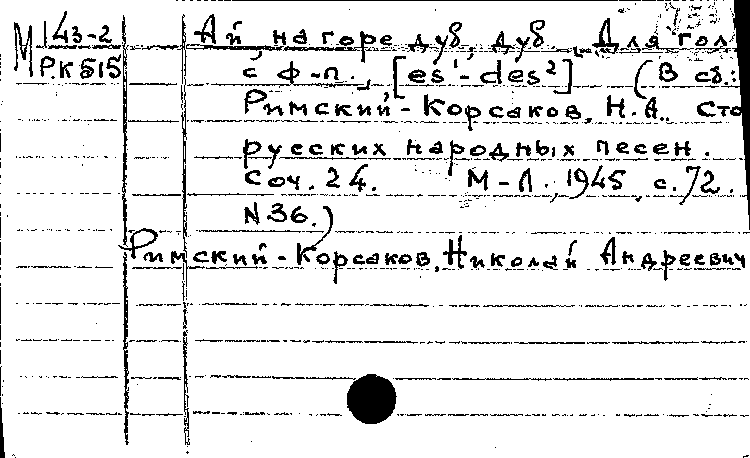 М 143-2 Ай, на горе дуб, дуб. Для гол
Р.К 515 с ф-п. [es¹-des²] (В сб.:
Римский-Корсаков, Н.А. Сто
русских народных песен.
Соч. 24. М-Л., 1945, с. 72.
N 36.)
Римский-Корсаков, Николай Андреевич